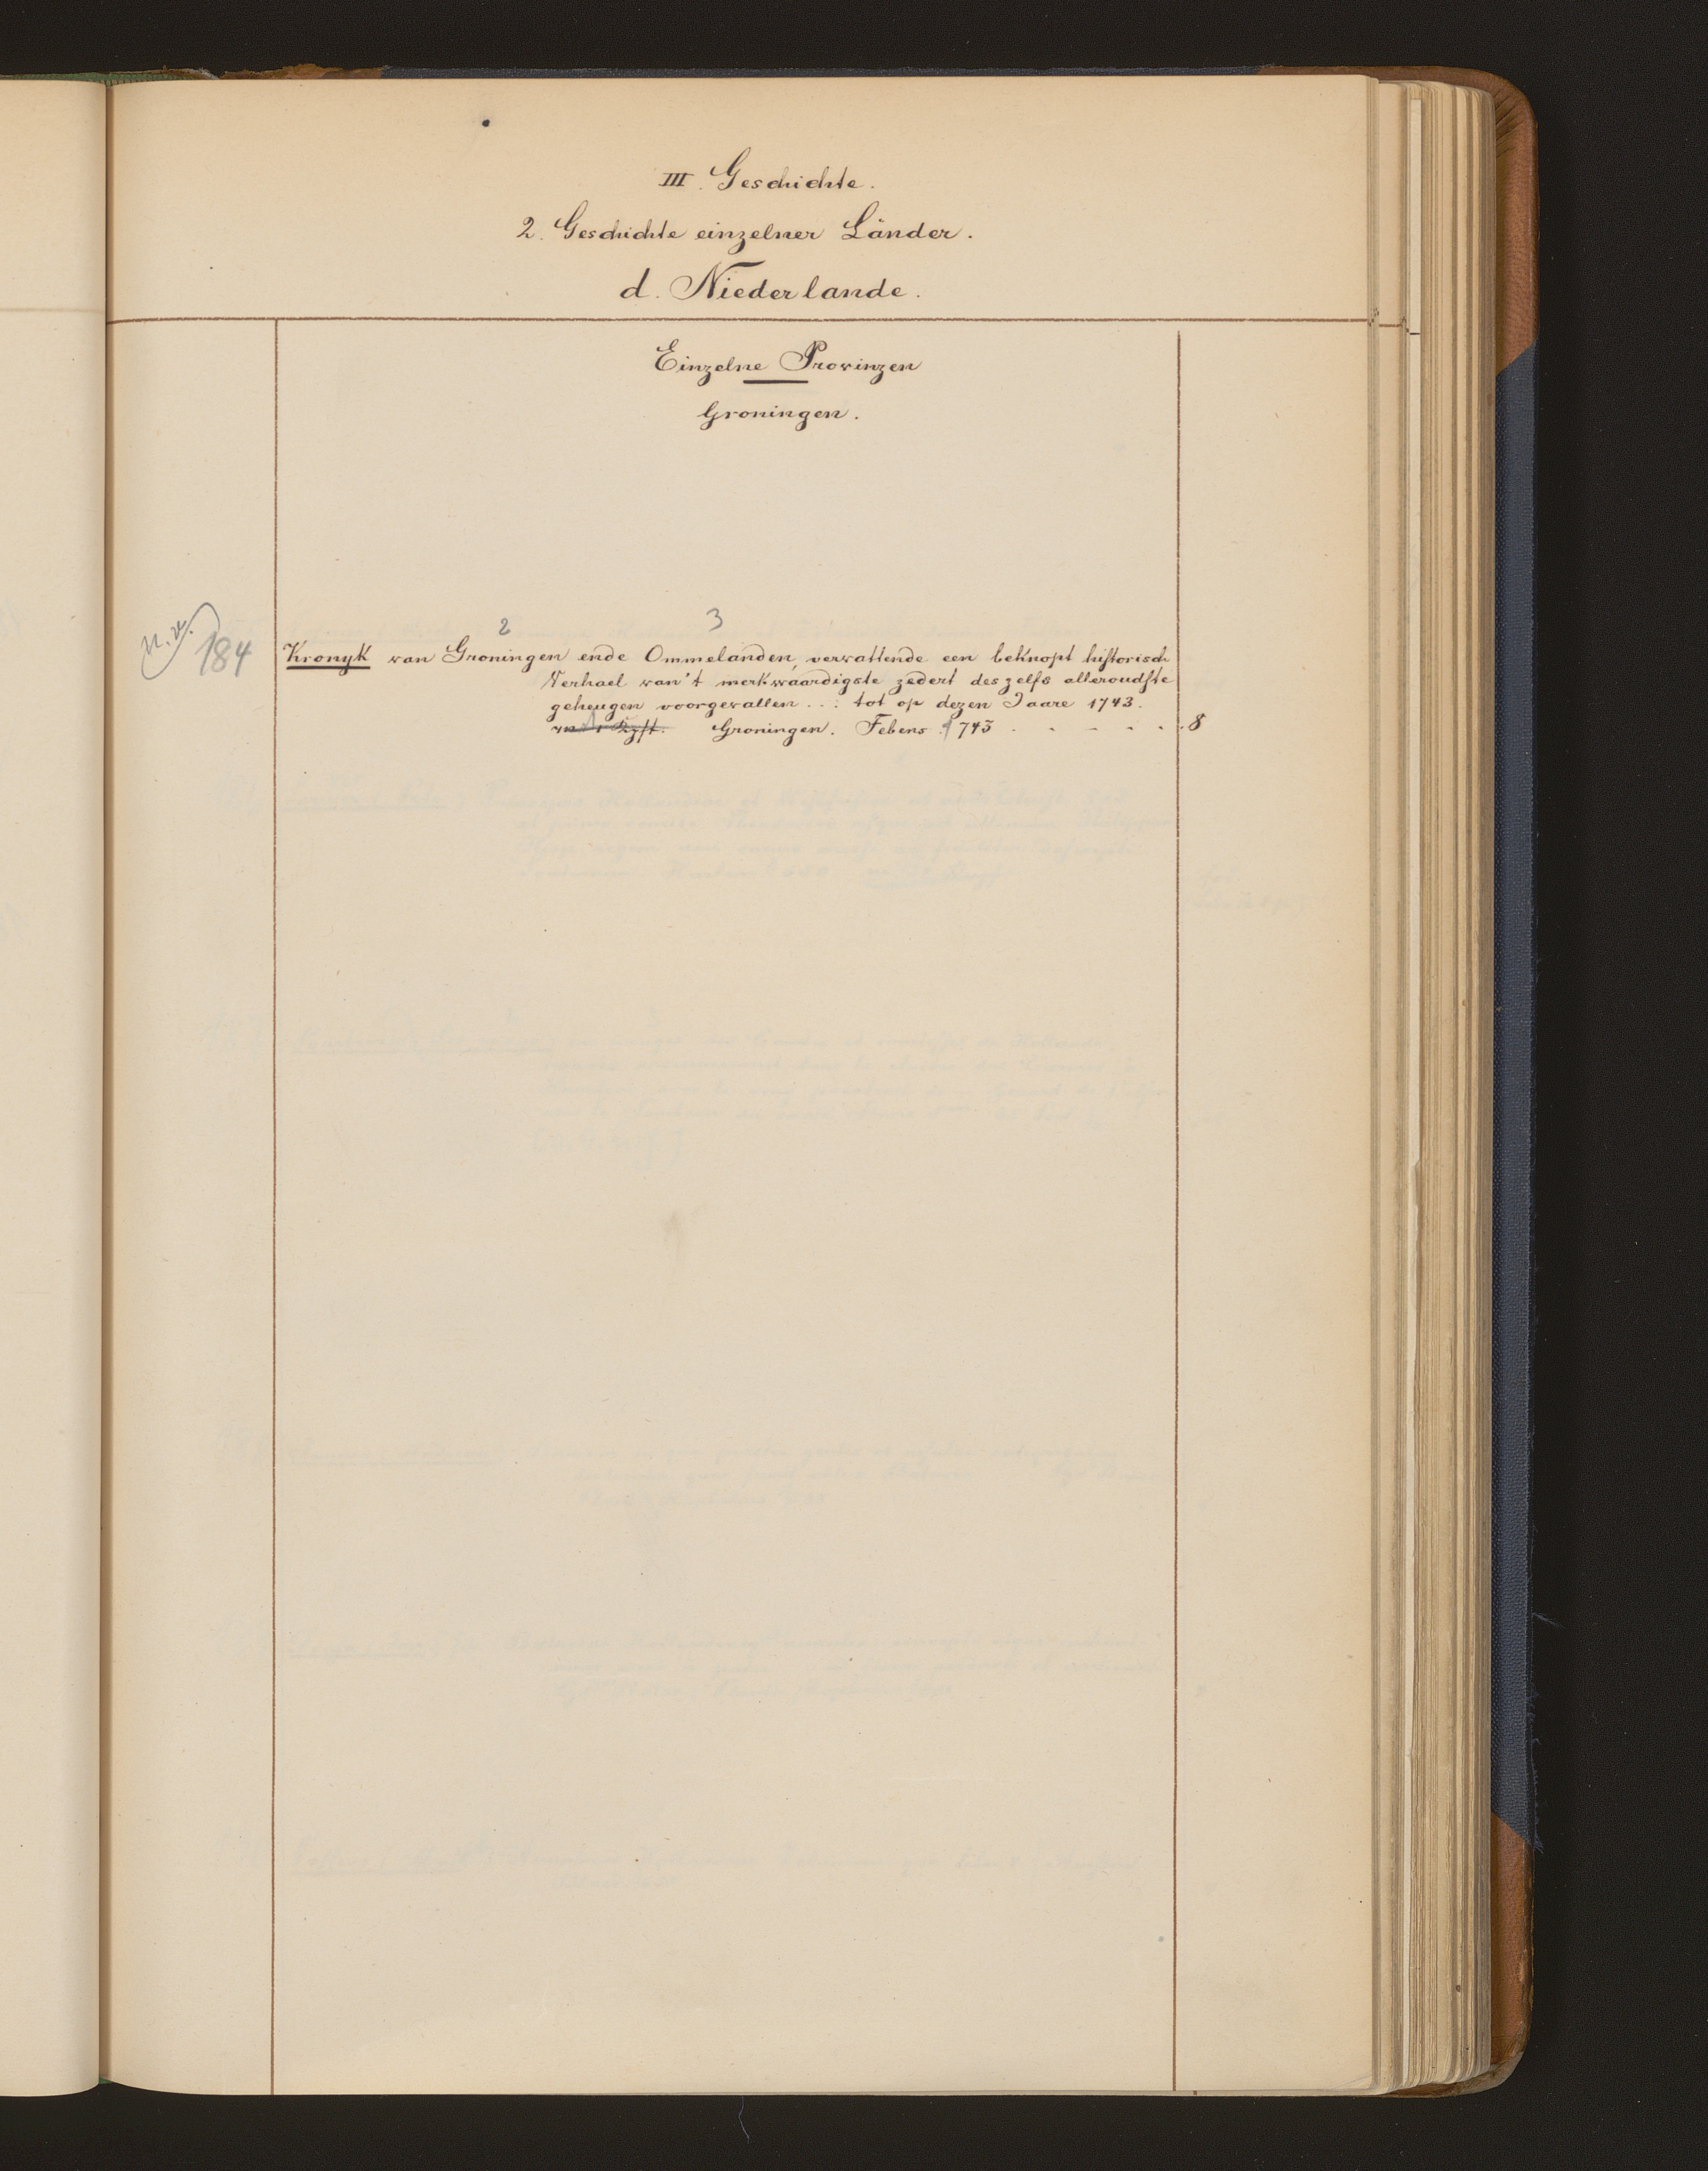 III. Geschichte.
2. Geschichte einzelner Länder.
d. Niederlande.
Einzelne Provinzen
Groningen.
2 3
184
Kronyk van Groningen ende Ommelanden, vervattende een beknopt historisch
Verhael van't merkwaardigste zedert deszelfs alleroudste
geheugen voorgevallen... tot op dezen Jaare 1743.
Groningen. Febens 1743 . . . . . . 8